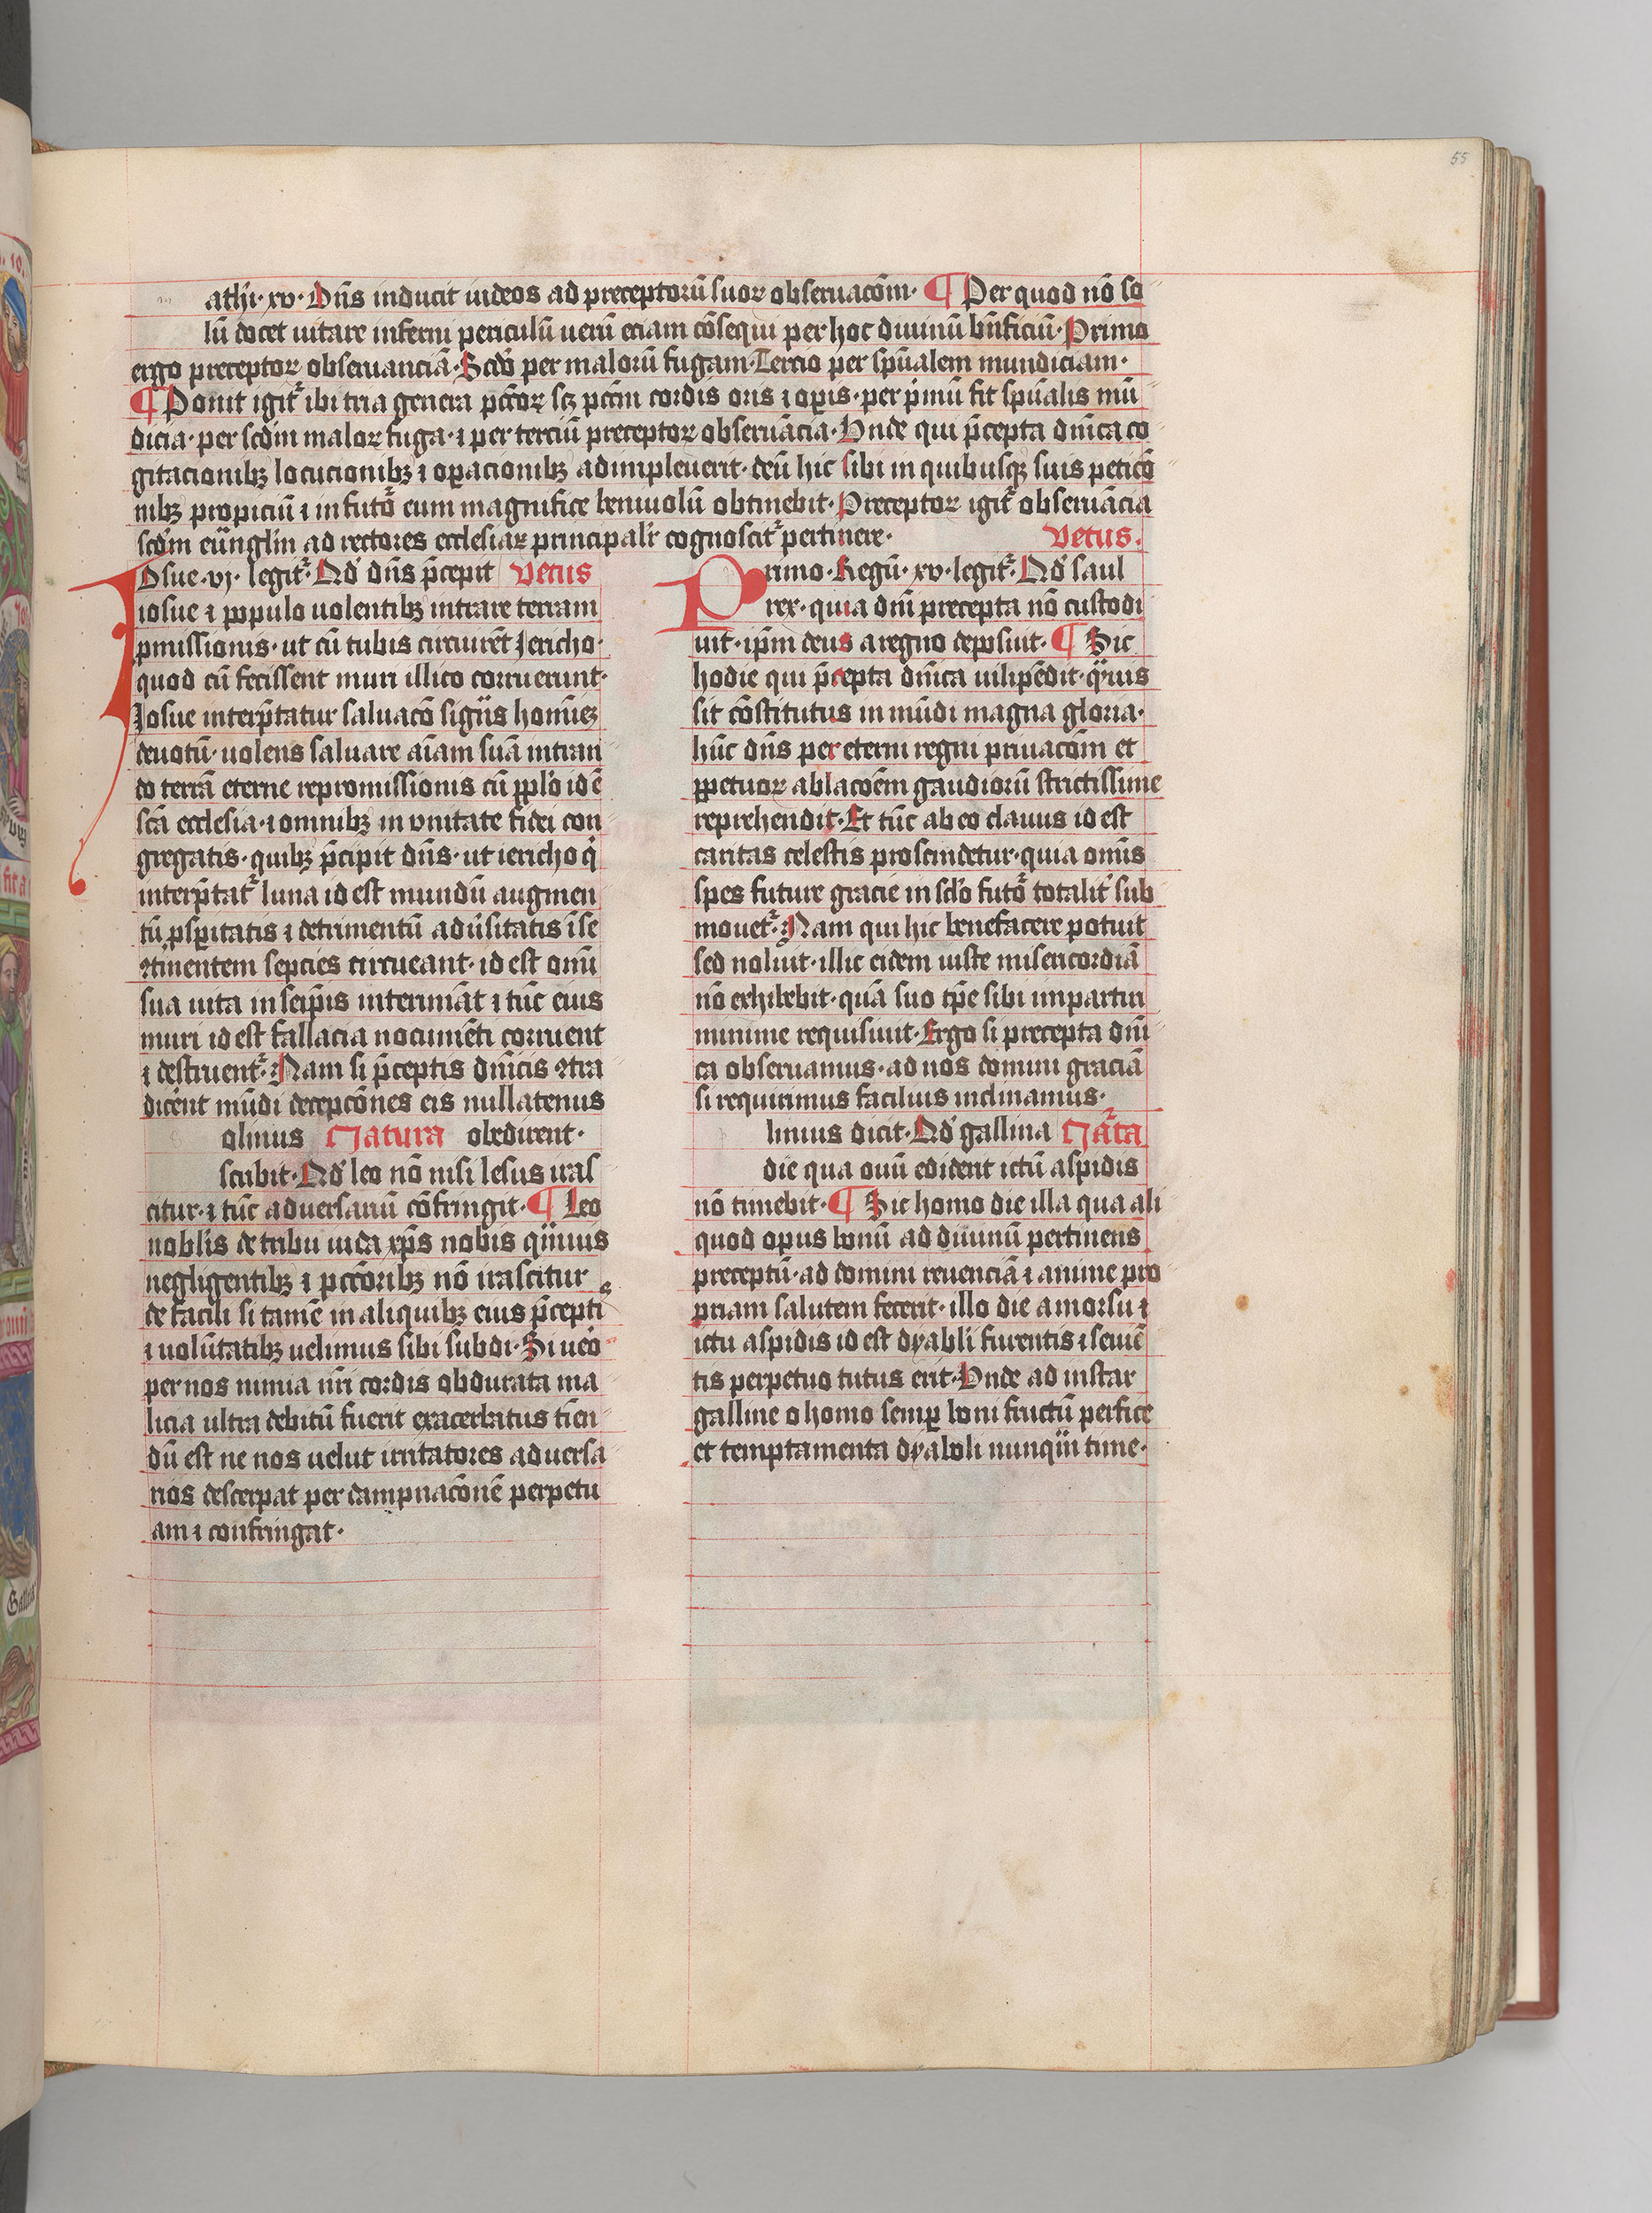 55
athī· xv· Dn̄s inducit iudeos ad preceptorū suoꝝ obseruacōm· ¶ Per quod nō so
lū docet uitare inferni periculū uerū eciam cōsequi per hoc diuinū bn̄ficiū· Primo
ergo preceptoꝝ obseruanciā· Scd̄o per malorū fugam· Tercio per sp̄ualem mundiciam·
¶ Ponit igit᷑ ibi tria genera pctōꝝ scꝫ pctm̄ cordis oris ⁊ oꝑis· per p̄mū fit sp̄ualis mū
dicia· per scdm̄ maloꝝ fuga· ⁊ per terciū preceptoꝝ obseruācia· Vnde qui p̄cepta dn̄ica co
gitacionibꝫ locucionibꝫ ⁊ oꝑacionibꝫ adimpleuerit· deū hic sibi in quibusqꝫ suis peticō
nibꝫ propiciū ⁊ in futō eum magnifice beniuolū obtinebit· Preceptoꝝ igit᷑ obseruācia
scdm̄ euāngliū ad rectores ecclesiaꝝ principalr̄ cognoscit᷑ pertinere·
Vetus.
Iosue· vj· legit᷑· Qd̓ dn̄s p̄cepit Vetus
iosue ⁊ populo uolentibꝫ intrare terram
ꝓmissionis· ut cū tubis circuirēt Jericho·
quod cū fecissent muri illico corruerunt·
Josue interp̄tatur saluacō sign̄s homīeꝫ
deuotū· uolens saluare aīam suā intran
do terrā eterne repromissionis cū pplō id ē
scā ecclesia· ⁊ omnibꝫ in vnitate fidei con
gregatis· quibꝫ p̄cipit dn̄s· ut iericho q̄
interp̄tat᷑ luna id est mundū augmen
tū ꝓsꝑitatis ⁊ detrimentū adūsitatis ī se
ꝯtinentem sepcies circueant· id est om̄i
sua uita in seip̄is interimāt ⁊ tūc eius
muri id est fallacia nocumēti corruent
⁊ destruent᷑· Nam si p̄ceptis dn̄icis ꝯtra
dicent mūdi decepcōnes eis nullatenus
obedirent·
olinus Natura
scribit· Qd̓ leo nō nisi lesus iras
citur· ⁊ tūc aduersariū cōfringit· ¶ Leo
nobl̄is de tribu iuda xp̄s nobis quīuis
negligentibꝫ ⁊ pctōribꝫ nō irascitur
de facili si tamē in aliquibꝫ eius p̄cepti
⁊ uolūtatibꝫ uelimus sibi subdi· Si uero
per nos nimia nr̄i cordis obdurata ma
licia ultra debitū fuerit exacerbatus timen
dū est ne nos uelut irritatores aduersa
rios descerpat per dampnacōnē perpetu
am ⁊ confringat·
Primo· Regū· xv· legit᷑· Qd̓ saul
rex· quia dn̄i precepta nō custodi
uit· ip̄m deus a regno deposuit· ¶ Sic
hodie qui p̄cepta dn̄ica uilipēdit· qūis
sit cōstitutus in mūdi magna gloria·
hūc dn̄s per eterni regni priuacōm et
ꝑpetuoꝝ ablacōem gaudiorū strictissime
reprehendit· Et tūc ab eo clauus id est
caritas celestis proscindetur· quia omīs
spes future gracie in sclō futō totalit̄ sub
mouet᷑· Nam qui hic benefacere potuit
sed noluit· illic eidem iuste misericordiā
nō exhibebit· quā suo tp̄e sibi impartiri
minime requisiuit· Ergo si precepta dn̄i
ca obseruamus· ad nos domini graciā
si requirimus facilius inclinamus·
linius dicit· Qd̓ gallina Nat᷑a
die qua ouū ediderit ictū aspidis
nō timebit· ¶ Sic homo die illa qua ali
quod opus bonū ad diuinū pertinens
preceptū· ad domini reuenciā ⁊ anime pro
priam salutem fecerit· illo die a morsu ⁊
ictu aspidis id est dyabli furentis ⁊ seuiē
tis perpetuo tutus erit· Vnde ad instar
galline o homo semꝑ boni fructū perfice
et temptamenta dyaboli nunquā time·